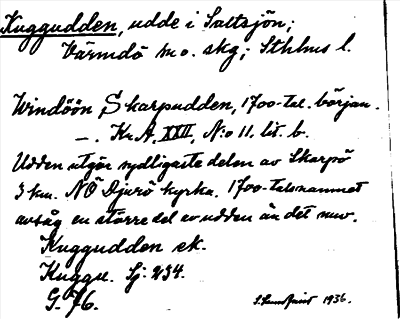 Kuggudden, udde i Saltsjön;
Värmdö m o. skg; Sthlms l.
Windöön, Skarpudden, 1700-tal. början.
—. Kr. A. XXII, N:o 11. lit. b.
Udden utgör sydligaste delen av Skarpö
3 km. NÖ Djurö kyrka. 1700-talsnamnet
avsåg en större del av udden än det nuv.
Kuggudden ek.
Kuggu. Sj: 234.
G. 76.
1936.